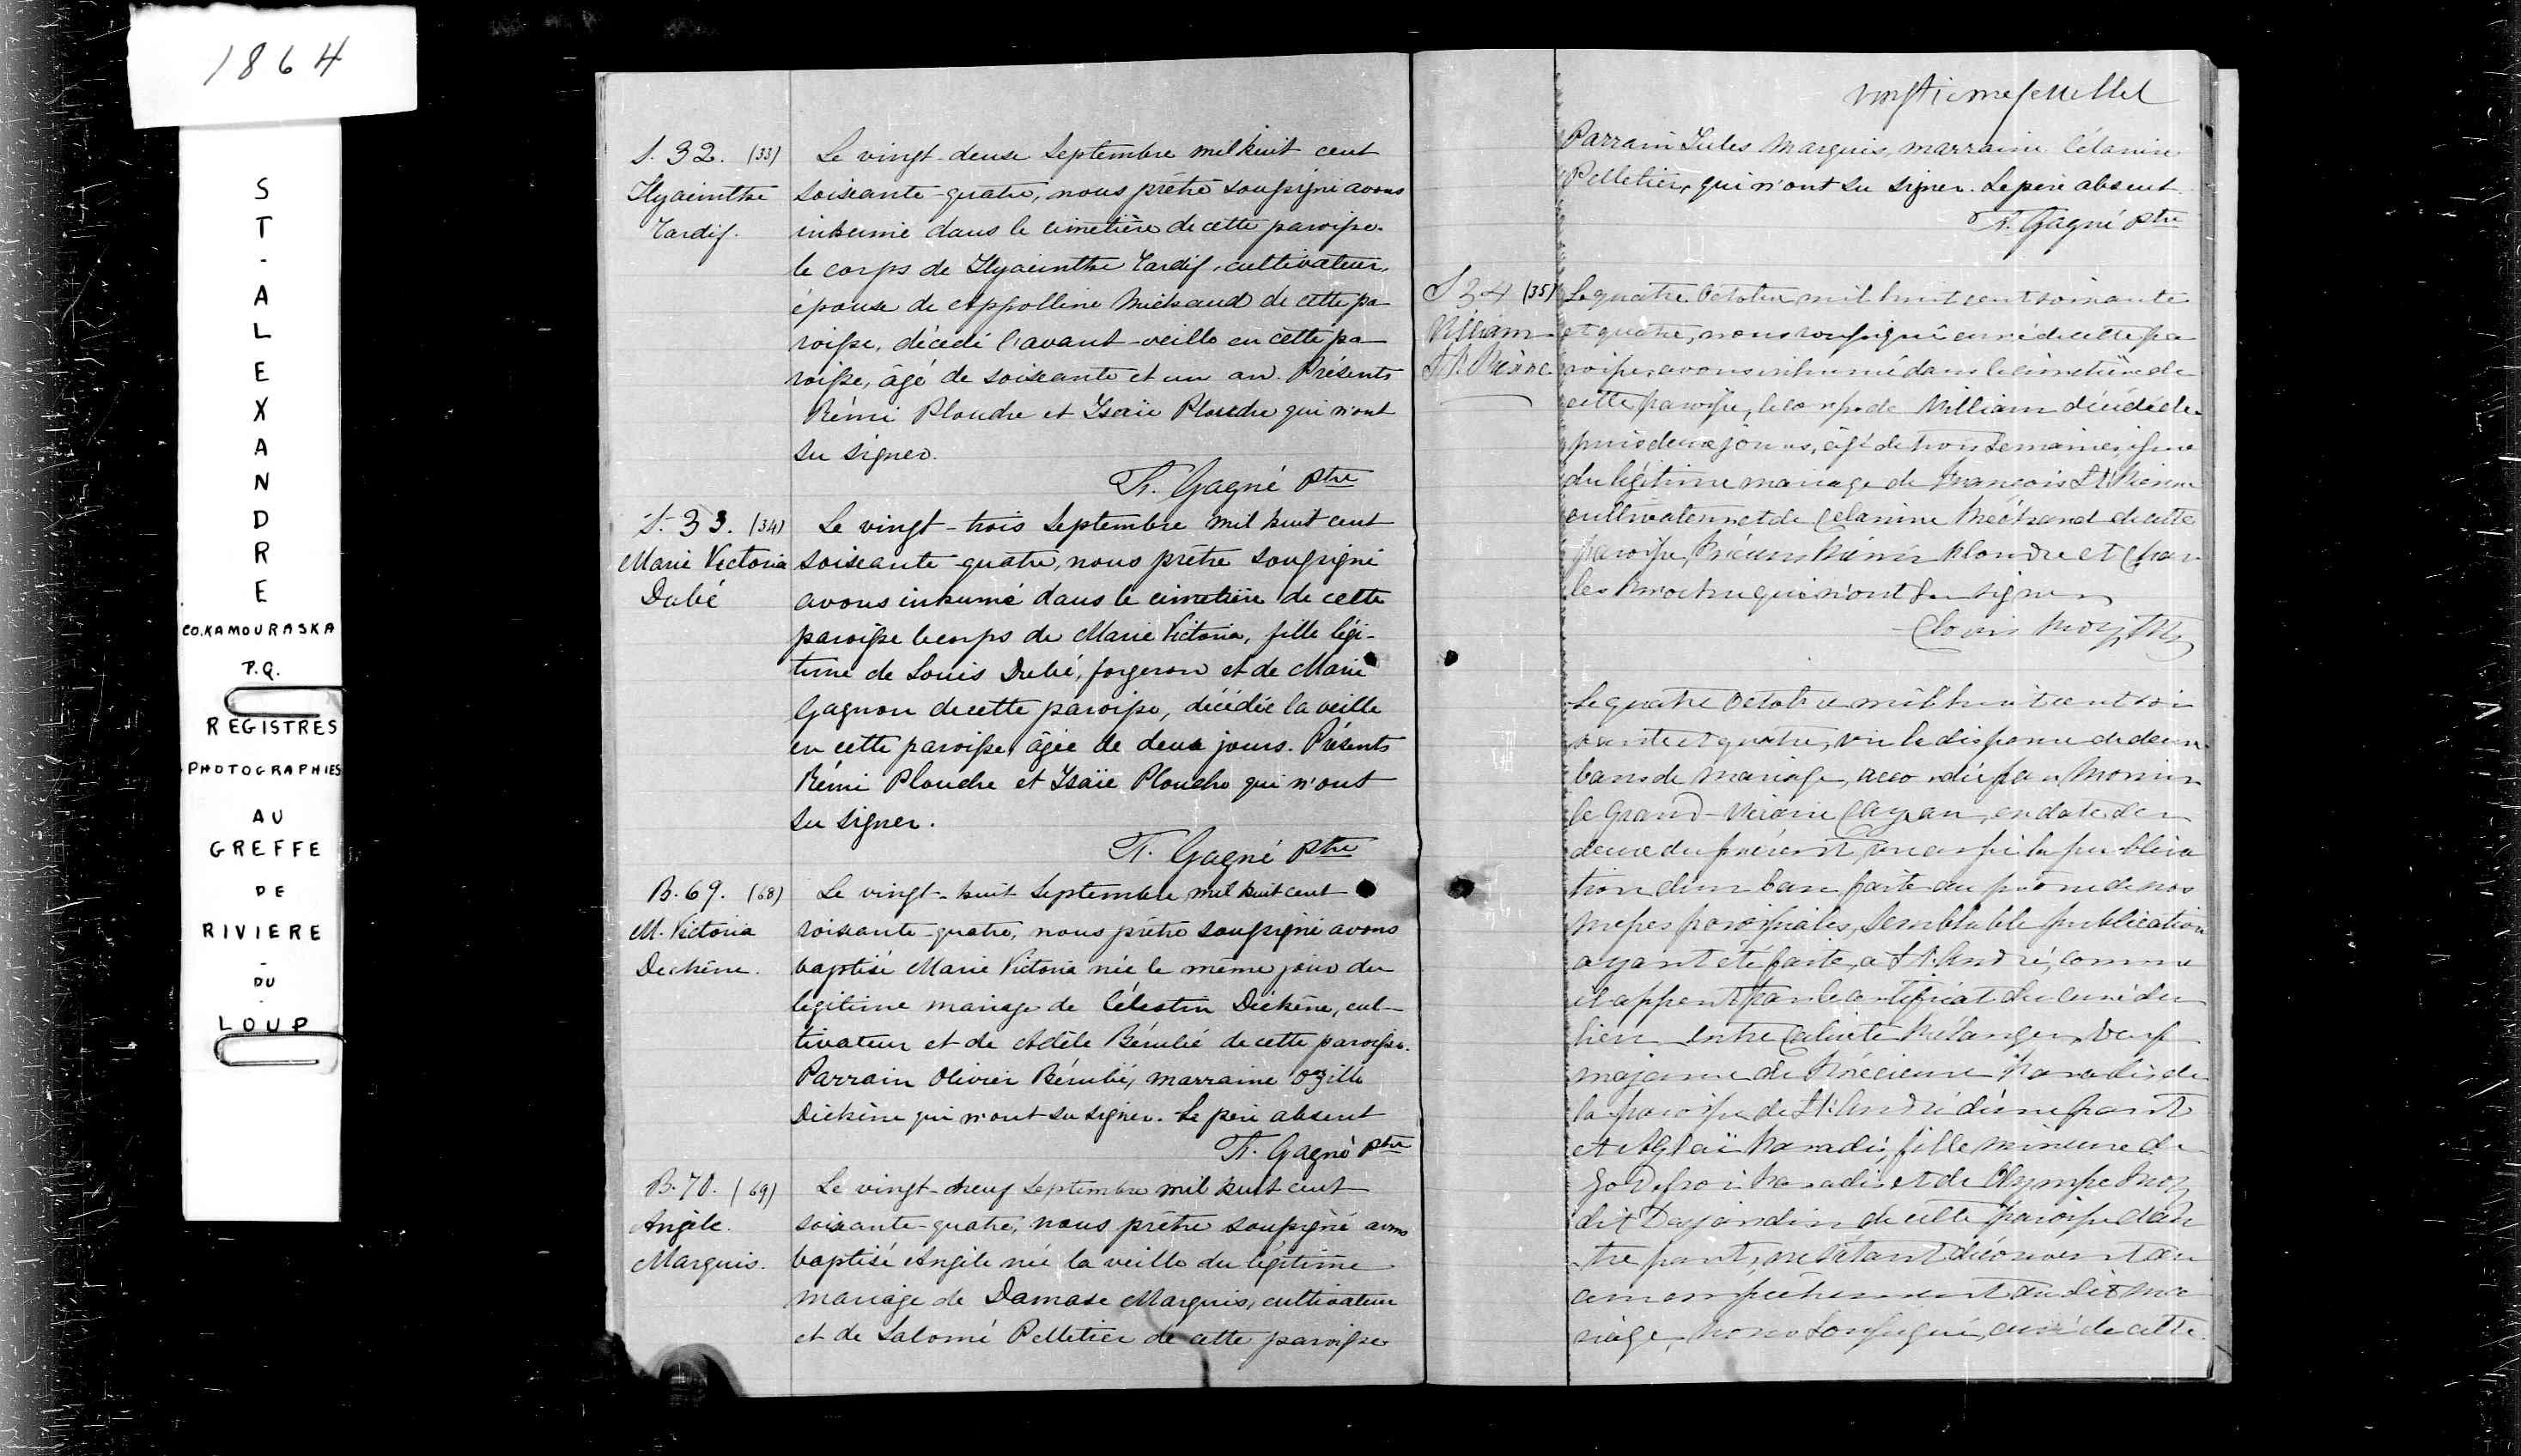 1864
ST-ALEXANDRE
CO. KAMOURASKA
P.Q.
REGISTRES
PHOTOGRAPHIES
AU
GREFFE
DE
RIVIERE
-
DU
LOUP
S. 32. (33)
Hyacinthe
Tardif.
Le vingt-deux Septembre mil huit cent
soixante-quatre, nous prêtre soussigné avons
inhumé dans le cimetière de cette paroisse
le corps de Hyacinthe Tardif, cultivateur,
époux de Appolline Michaud de cette pa-
roisse, décédé l'avant-veille en cette pa-
roisse, âgé de soixante et un an. Présents
Rémi Plourde et Isaïe Plourde qui n'ont
su signer.
F. Gagné Ptre
S. 33. (34)
Marie Victoria
Dubé
Le vingt-trois Septembre mil huit cent
soixante-quatre, nous prêtre soussigné
avons inhumé dans le cimetière de cette
paroisse le corps de Marie Victoria, fille légi-
time de Louis Dubé, forgeron et de Marie
Gagnon de cette paroisse, décédée la veille
en cette paroisse, âgée de deux jours. Présents
Rémi Plourde et Isaïe Plourde qui n'ont
su signer.
F. Gagné Ptre
B. 69. (68)
M. Victoria
Dechêne.
Le vingt-huit Septembre mil huit cent
soixante-quatre, nous prêtre soussigné avons
baptisé Marie Victoria née le même jour du
légitime mariage de Célestin Dichêne, cul-
tivateur et de Adèle Bérubé de cette paroisse.
Parrain Olivier Bérubé, marraine Ozille
Dichêne qui n'ont su signer. Le père absent
F. Gagné Ptre
B. 70. (69)
Angèle
Marquis.
Le vingt-neuf Septembre mil huit cent
soixante-quatre, nous prêtre soussigné avons
baptisé Angèle née la veille du légitime
mariage de Damase Marquis, cultivateur
et de Salomé Pelletier de cette paroisse
vingtième feuillet
Parrain Jules Marquis, marraine Célanire
Pelletier, qui n'ont su signer. Le père absent
F. Gagné Ptre
S 34 (35)
William
St. Pierre
Le quatre Octobre mil huit cent soixante
et quatre, nous soussigné curé de cette pa
roisse, avons inhumé dans le cimetière de
cette paroisse, le corps de William décédé de
puis deux jours, âgé de trois semaines, issue
du légitime mariage de François St. Pierre
cultivateur et de Celanire Michaud de cette
paroisse, Présens Rémi Plourde et Char
les qui n'ont su signer
Clovis Roy Ptre
Le quatre Octobre mil huit cent soi
xante et quatre, vu la dispense de deux
bans de mariage, accordée par Monsr
le Grand-Vicaire Cazeau, en date du
deux du présent, vu aussi la publica
tion d'un ban faite au prône de nos
messes paroissiales, semblable publication
ayant été faite, à St. André, comme
il appert par le certificat du curé du
lieu entre Calixte Bélanger, veuf
majeur de Paradis de
la paroisse de St. André d'une part
et Aglaï Paradis, fille mineure de
Godefroi Paradis et de Olympe Roy
dit Desjardins de cette paroisse d'au
tre part; ne s'étant découvert au
cun empêchement au dit ma
riage, nous soussigné, curé de cette